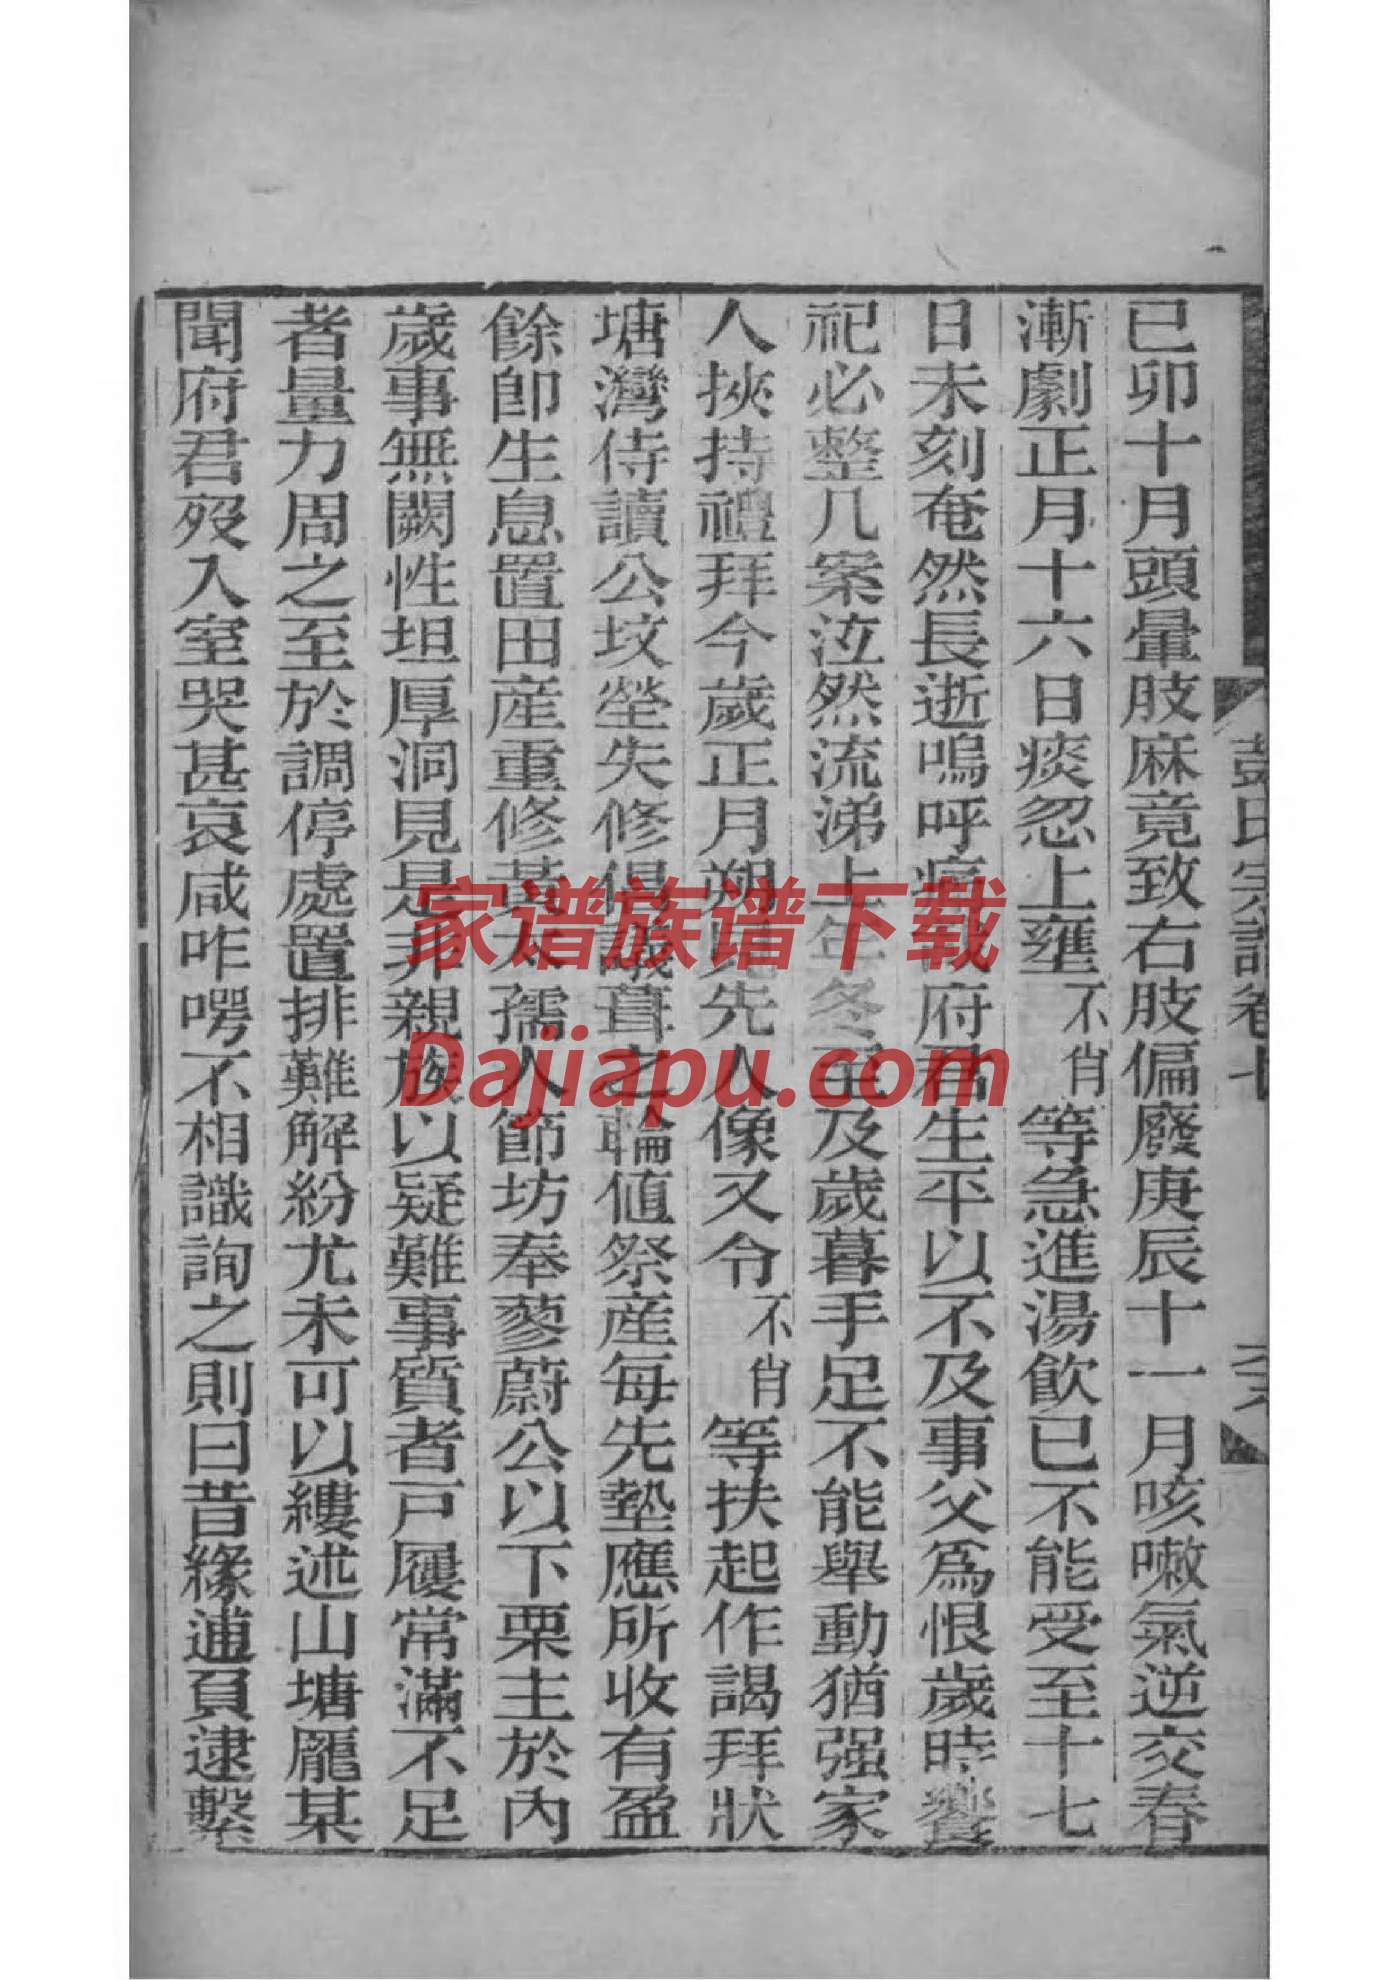 已卯十月頭暈肢麻竟致右肢偏廢庚辰十一月咳嗽氣逆交春
漸劇正月十六日痰忽上壅不肖等急進湯飲已不能受至十七
日未刻奄然長逝嗚呼痛哉府君生平以不及事父爲恨歲時饗
祀必整几案泣然流涕上年冬至及歲暮手足不能舉動猶强家
人挾持禮拜今歲正月朔見先人像又令不肖等扶起作謁拜狀
塘灣侍讀公墳塋失修倡議葺之輪値祭産每先墊應所收有盈
餘卽生息置田産重修黃太孺人節坊奉蓼蔚公以下栗主於內
歲事無闕性坦厚洞見是非親族以疑難事質者戸屨常滿不足
者量力周之至於調停處置排難解紛尤未可以縷述山塘龐某
聞府君歿入室哭甚哀咸咋咢不相識詢之則曰昔緣逋負逮繫
彭氏宗譜卷七
家谱族谱下载
Dajiapu.com